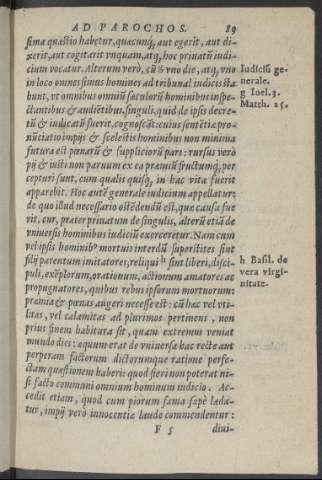 AD PAROCHOS. 89
sima quæstio habetur, quæcunq́; aut egerit, aut di-
xerit, aut cogitarit vnquam, atq; hoc priuatũ iudi-
cium vocatur. Alterum verò, cũ & vno die, atq; vno
in loco omnes simul homines ad tribunal iudicis sta
bunt, vt omnibus omniũ sæculorũ hominibus inspe-
ctantibus & audiẽtibus, singuli, quid de ipsis decre-
tũ & iudicatũ fuerit, cognoscãt: cuius sentẽtiæ pro-
nũtiatio impijs & scelestis hominibus non minima
futura est pœnarũ & suppliciorũ pars: rursus verò
pij & iusti non paruum ex ea præmiũ fructumq́; per
cepturi sunt, cum qualis quisq; in hac vita fuerit
apparebit. Hoc autẽ generale iudicium appellatur:
de quo illud necessario ostẽdendũ est, quæ causa fue
rit, cur, præter priuatum de singulis, alterũ etiã de
vniuersis hominibus iudiciũ exerceretur. Nam cum
vel ipsis hominibꝰ mortuis interdũ superstites sint
filij parentum imitatores, reliqui h sint liberi, disci-
puli, exẽplorum, orationum, actionum amatores ac
propugnatores, quibus rebus ipsorum mortuorum
præmia & pœnas augeri necesse est: cũ hæc vel vti-
litas, vel calamitas ad plurimos pertinens, non
prius finem habitura sit, quam extremus veniat
mundo dies: æquum erat de vniuersa hac recte aut
perperam factorum dictorumque ratione perfe-
ctam quæstionem haberi: quod fieri non poterat ni-
si facto communi omnium hominum iudicio. Ac-
cedit etiam, quod cum piorum fama sæpè lædа-
tur, impij verò innocentiæ laude commendentur:
F 5 diui-
Iudiciũ ge-
nerale.
g Ioel. 3.
Matth. 25.
h Basil. de
vera virgi-
nitate.